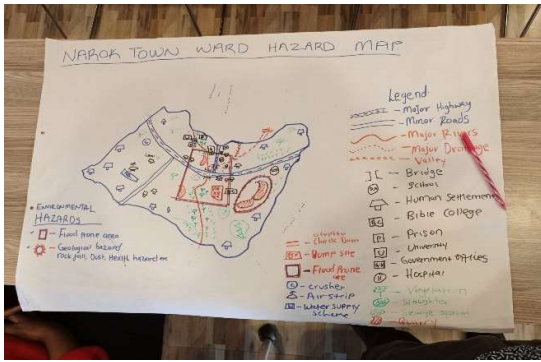 NAROK TOWN WARD HAZARD MAP
Legend
- Major Highway
- Minor Roads
- Major Rivers
- Major Drainage
- Valley
- Bridge
- School
- Human Settlement
- Bible College
- Prison
- University
- Government Offices
- Hospital
- Vegetation
- Slaughter
- Quarry
ENVIRONMENTAL
HAZARDS
- Flood Prone area
- Geological hazard
rock fall, Dust, Health hazard
- Dump site
- Flood Prone
are
- crusher
- Air strip
- Water supply
scheme